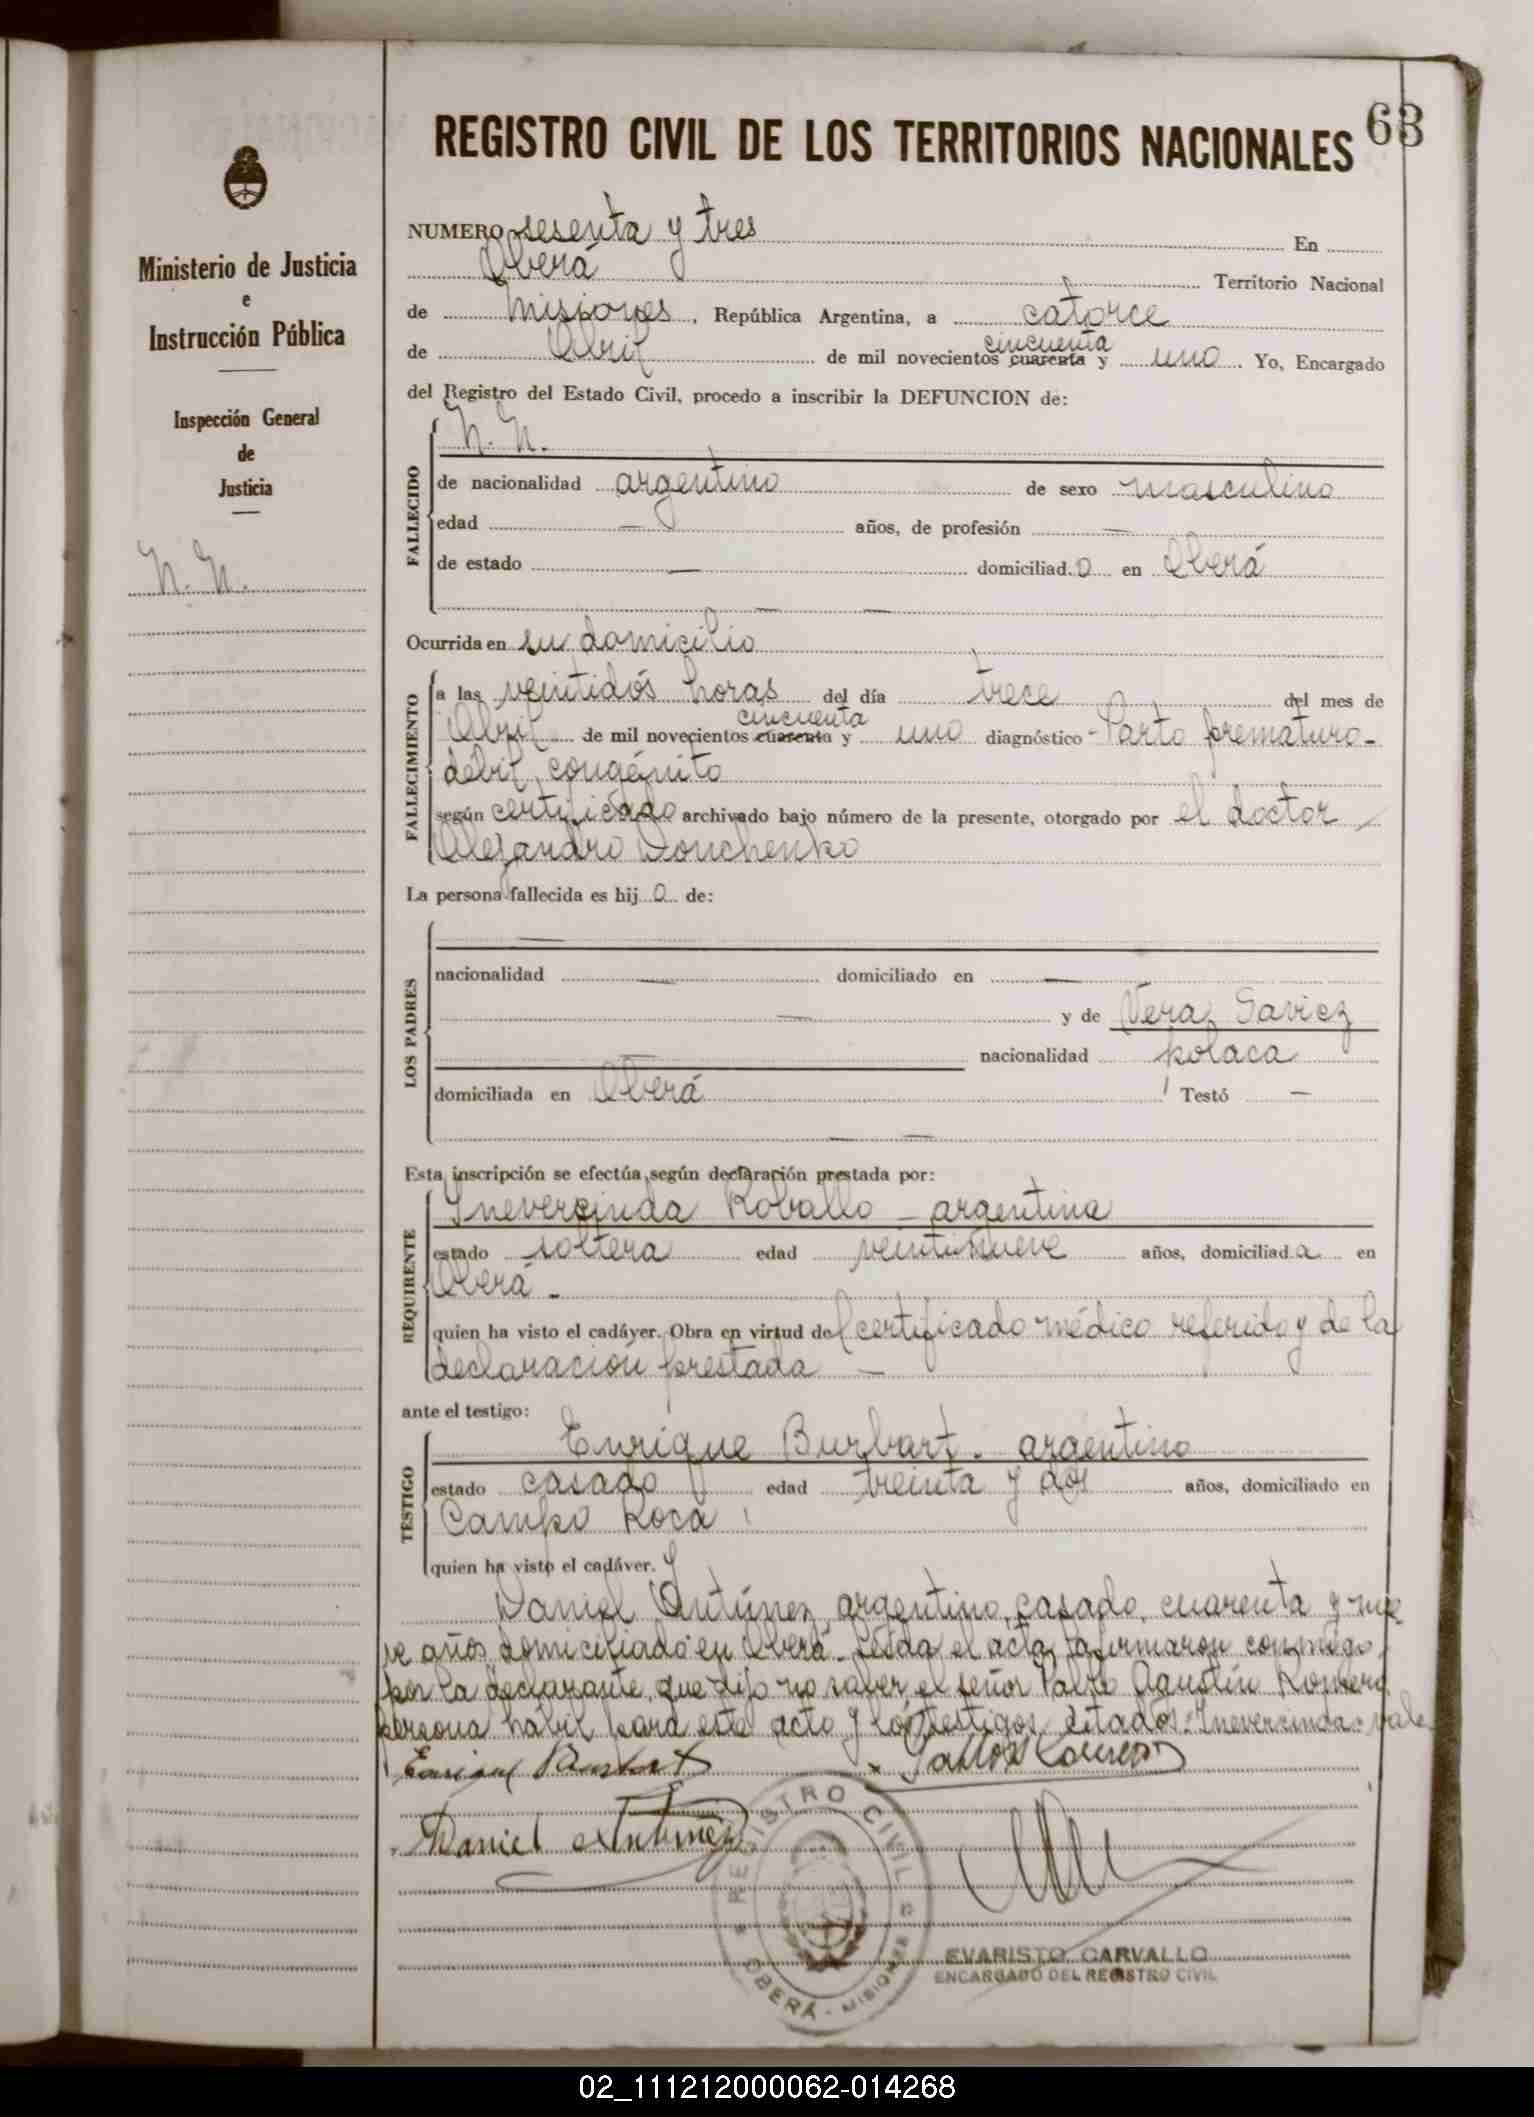 63
REGISTRO CIVIL DE LOS TERRITORIOS NACIONALES
Ministerio de Justicia
e
Instrucción Pública
Inspección General
de
Justicia
N. N.
NUMERO sesenta y tres En
Oberá Territorio Nacional
de Misiones, República Argentina, a catorce
cincuenta
de Abril de mil novecientos cuarenta y uno. Yo, Encargado
del Registro del Estado Civil, procedo a inscribir la DEFUNCION de:
FALLECIDO
N. N.
de nacionalidad argentino de sexo masculino
edad — años, de profesión —
de estado — domiciliad o en Oberá
— —
Ocurrida en su domicilio
FALLECIMIENTO
a las veintidós horas del día trece del mes de
cincuenta
Abril de mil novecientos cuarenta y uno diagnóstico Parto prematuro-
débil congénito
según certificado archivado bajo número de la presente, otorgado por el doctor
Alejandro
La persona fallecida es hij o de:
LOS PADRES
—
nacionalidad — domiciliado en —
— y de Vera Savicz
— nacionalidad polaca
domiciliada en Oberá Testó —
— —
Esta inscripción se efectúa según declaración prestada por:
REQUIRENTE
Inevercinda Roballo - argentina
estado soltera edad veintinueve años, domiciliad a en
Oberá -
quien ha visto el cadáver. Obra en virtud del certificado médico referido y de la
declaración prestada —
ante el testigo:
TESTIGO
Enrique Burbart - argentino
estado casado edad treinta y dos años, domiciliado en
Campo Roca
quien ha visto el cadáver. y
Daniel Antúnez, argentino, casado, cuarenta y nue
ve años domiciliado en Oberá. Leída el acta, la firmaron conmigo,
por la declarante, que dijo no saber, el señor Pablo Agustín Romero
persona hábil para este acto y los testigos citados. Inevercinda: vale
Daniel Antúnez
REGISTRO CIVIL
OBERÁ - MISIONES
EVARISTO CARVALLO
ENCARGADO DEL REGISTRO CIVIL
02_111212000062-014268